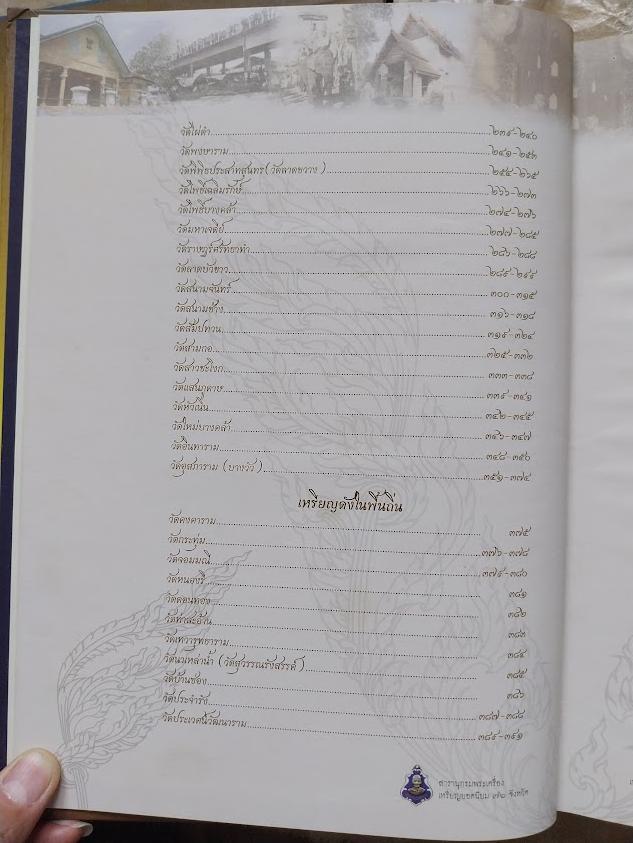 วัดไผ่ดำ ๒๓๙-๒๔๐
วัดพงษาราม ๒๔๑-๒๕๓
วัดพิพิธประสาทสุนทร(วัดลาดขวาง) ๒๕๔-๒๖๕
วัดโพธิ์เฉลิมรักษ์ ๒๖๖-๒๗๓
วัดโพธิ์บางคล้า ๒๗๔-๒๗๖
วัดมหาเจดีย์ ๒๗๗-๒๘๕
วัดราษฎร์ศรัทธาทำ ๒๘๖-๒๘๘
วัดลาดบัวขาว ๒๘๙-๒๙๙
วัดสนามจันทร์ ๓๐๐-๓๑๕
วัดสนามช้าง ๓๑๖-๓๑๘
วัดสัมปทวน ๓๑๙-๓๒๔
วัดสามกอ ๓๒๕-๓๓๒
วัดสาวชะโงก ๓๓๓-๓๓๘
วัดแสนภูดาษ ๓๓๙-๓๔๑
วัดหัวเนิน ๓๔๒-๓๔๕
วัดใหม่บางคล้า ๓๔๖-๓๔๗
วัดอินทาราม ๓๔๘-๓๕๐
วัดอุสภาราม (บางวัว) ๓๕๑-๓๗๔
เหรียญดังในพื้นถิ่น
วัดคงคาราม ๓๗๕
วัดกระทุ่ม ๓๗๖-๓๗๘
วัดจอมมณี ๓๗๙-๓๘๐
วัดหนองรี ๓๘๑
วัดดอนทอง ๓๘๒
วัดท่าสะอ้าน ๓๘๓
วัดเทวารุทธาราม ๓๘๔
วัดแหลมน้ำ (วัดสุวรรณรังสรรค์) ๓๘๕
วัดบ้านซ่อง ๓๘๖
วัดประจำรัง ๓๘๗-๓๘๘
วัดประเวศน์วัฒนาราม ๓๘๙-๓๙๑
สารานุกรมพระเครื่อง
เหรียญยอดนิยม ๗๒ จังหวัด